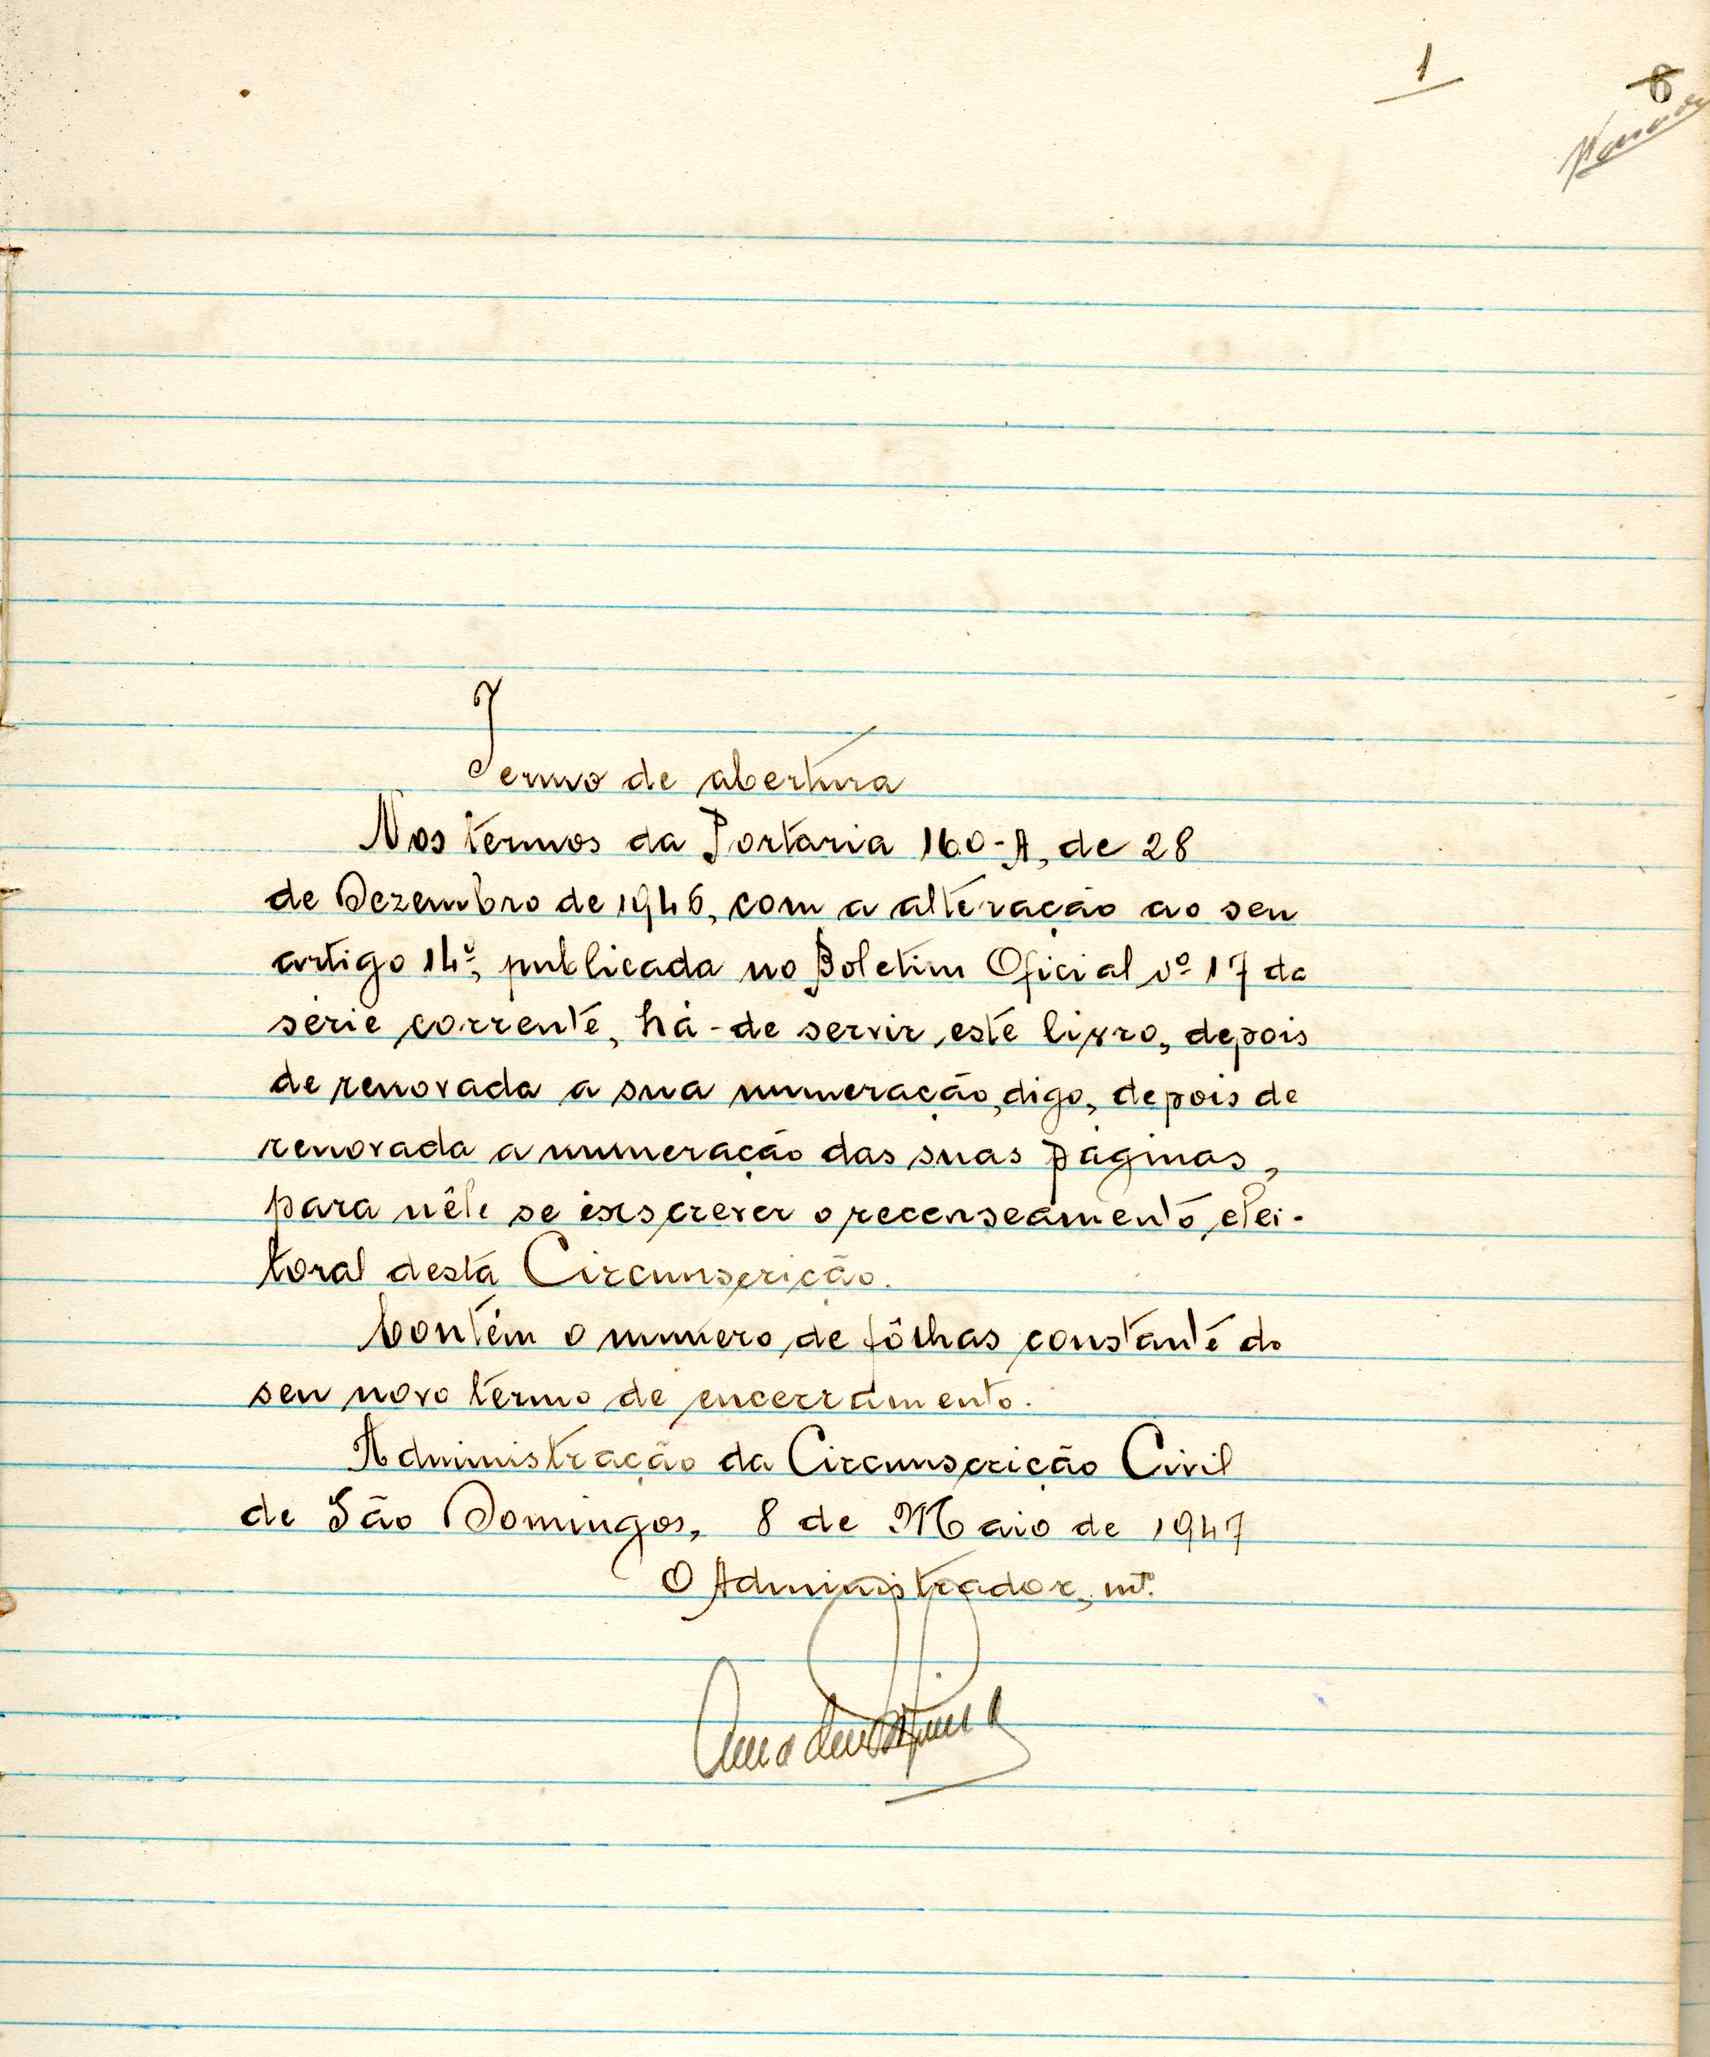 1
6
Termo de abertura
Nos termos da Portaria 160-A, de 28
de Dezembro de 1946, com a alteração ao seu
artigo 14º, publicada no Boletim Oficial nº 17 da
série corrente, há-de servir este livro, depois
de renovada a sua numeração, digo, depois de
renovada a numeração das suas páginas,
para nêle se escrever o recenseamento elei-
toral desta Circunscrição.
Contém o número de fôlhas constante do
seu novo termo de encerramento.
Administração da Circunscrição Civil
de São Domingos, 8 de Maio de 1947
O Administrador, intº.